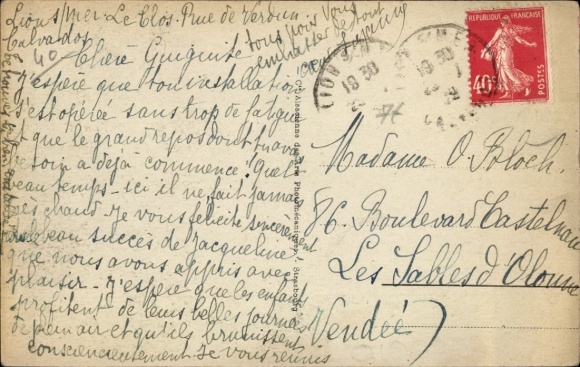 Lion s/mer - Le Clos - Rue de Verdun
Calvados
40
Chère Guiguite
J'espère que ton installation
s'est opérée sans trop de fatigue
et que le grand repos dont tu avais
besoin a déjà commencé. Quel
beau temps - ici il ne fait jamais
très chaud. Je vous félicite sincèrement
du beau succès de Jacqueline
que nous avons appris avec
plaisir - J'espère que les enfants
profitent de leurs belles journées
de plein air et qu'ils brunissent
consciencieusement. Je vous
tous pour vous
embrasser de tout
Cie Alsacienne des Arts Photomécaniques, Strasbourg
LION S/MER
18 30
18 30
76
REPUBLIQUE FRANÇAISE
40c
POSTES
Madame O. Bloch
86 Boulevard Castelnau
Les Sables d'Olonne
Vendée